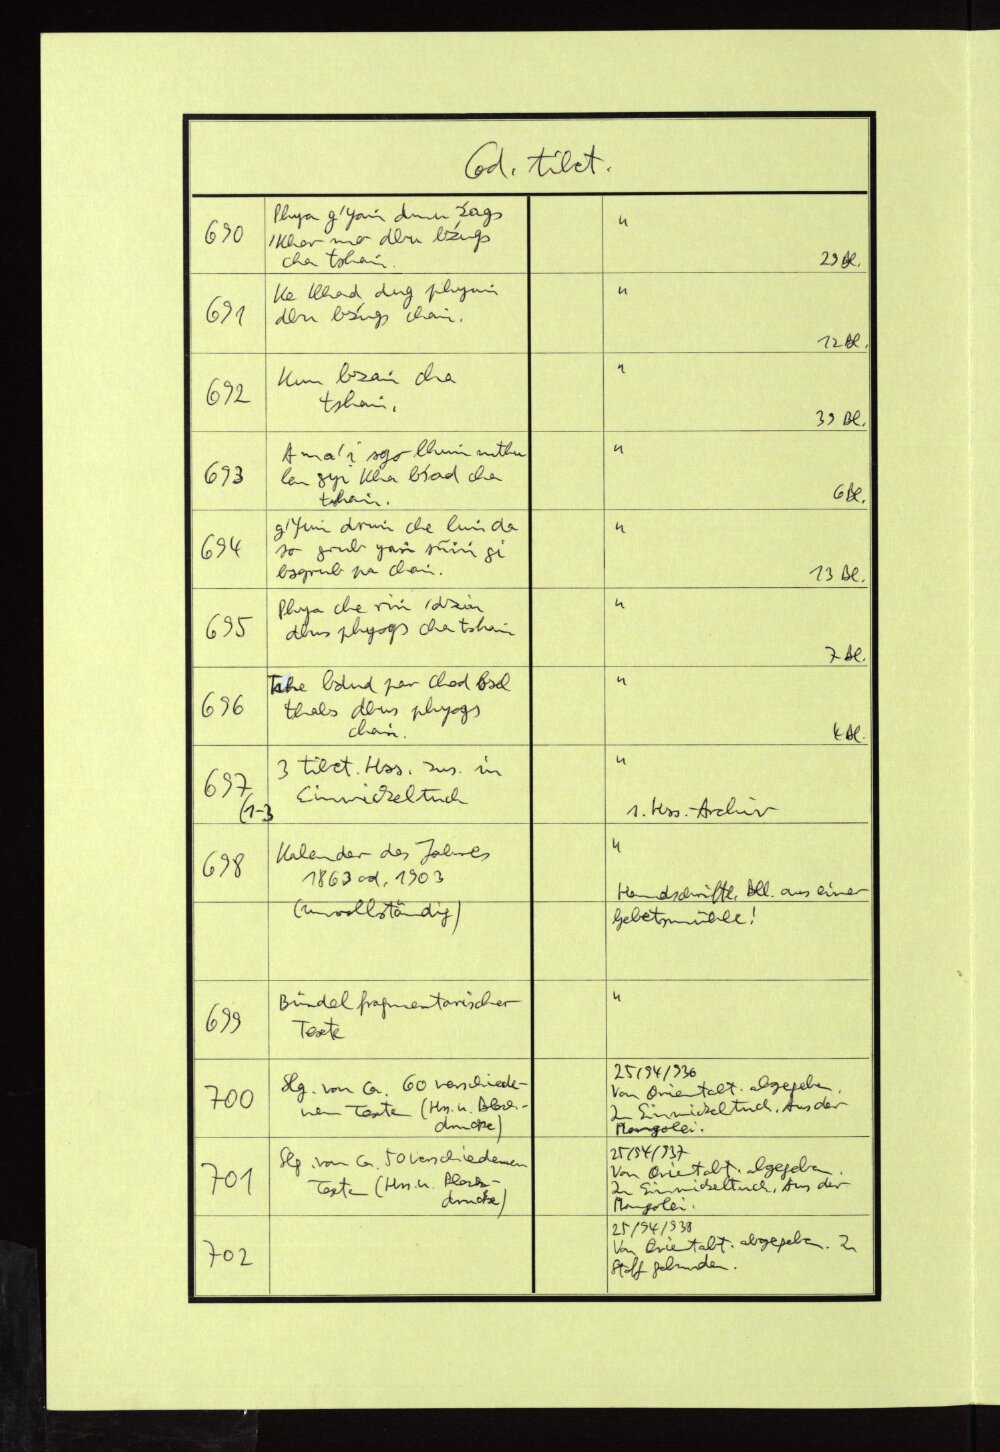 Cod. tibet.
690
Phya g'yaṅ dmu źags
'khor mo dbu bźugs
cha tshaṅ.
"
29 Bl.
691
Ke khad dug phyuṅ
dbu bźugs chaṅ.
"
12 Bl.
692
Kun bzaṅ cha
tshaṅ.
"
39 Bl.
693
A ma'i sgo lhuṅ mthu
lan gyi kha bśad cha
tshaṅ.
"
6 Bl.
694
g'Yuṅ druṅ che luṅ da
so grub yaṅ sñiṅ gi
bsgrub pa chaṅ.
"
13 Bl.
695
Phya che riṅ 'dzin
dbus phyogs cha tshaṅ
"
7 Bl.
696
Tshe bdud par chod bsel
thabs dbus phyogs
chaṅ.
"
4 Bl.
697
(1-3
3 tibet. Hss. zus. in
Einwickeltuch
"
1. Hss.-Archiv
698
Kalender des Jahres
1863 od. 1903
(unvollständig)
"
Handschriftl. Bll. aus einer
Gebetsmühle!
699
Bündel fragmentarischer
Texte
"
700
Slg. von ca. 60 verschiede-
nen Texten (Hss. u. Block-
drucke)
25/94/936
Von Orientabt. abgegeben.
In Einwickeltuch. Aus der
Mongolei.
701
Slg. von ca. 50 verschiedenen
Texten (Hss. u. Block-
drucke)
25/94/937
Von Orientabt. abgegeben.
In Einwickeltuch. Aus der
Mongolei.
702
25/94/938
Von Orientabt. abgegeben. In
Stoff gebunden.